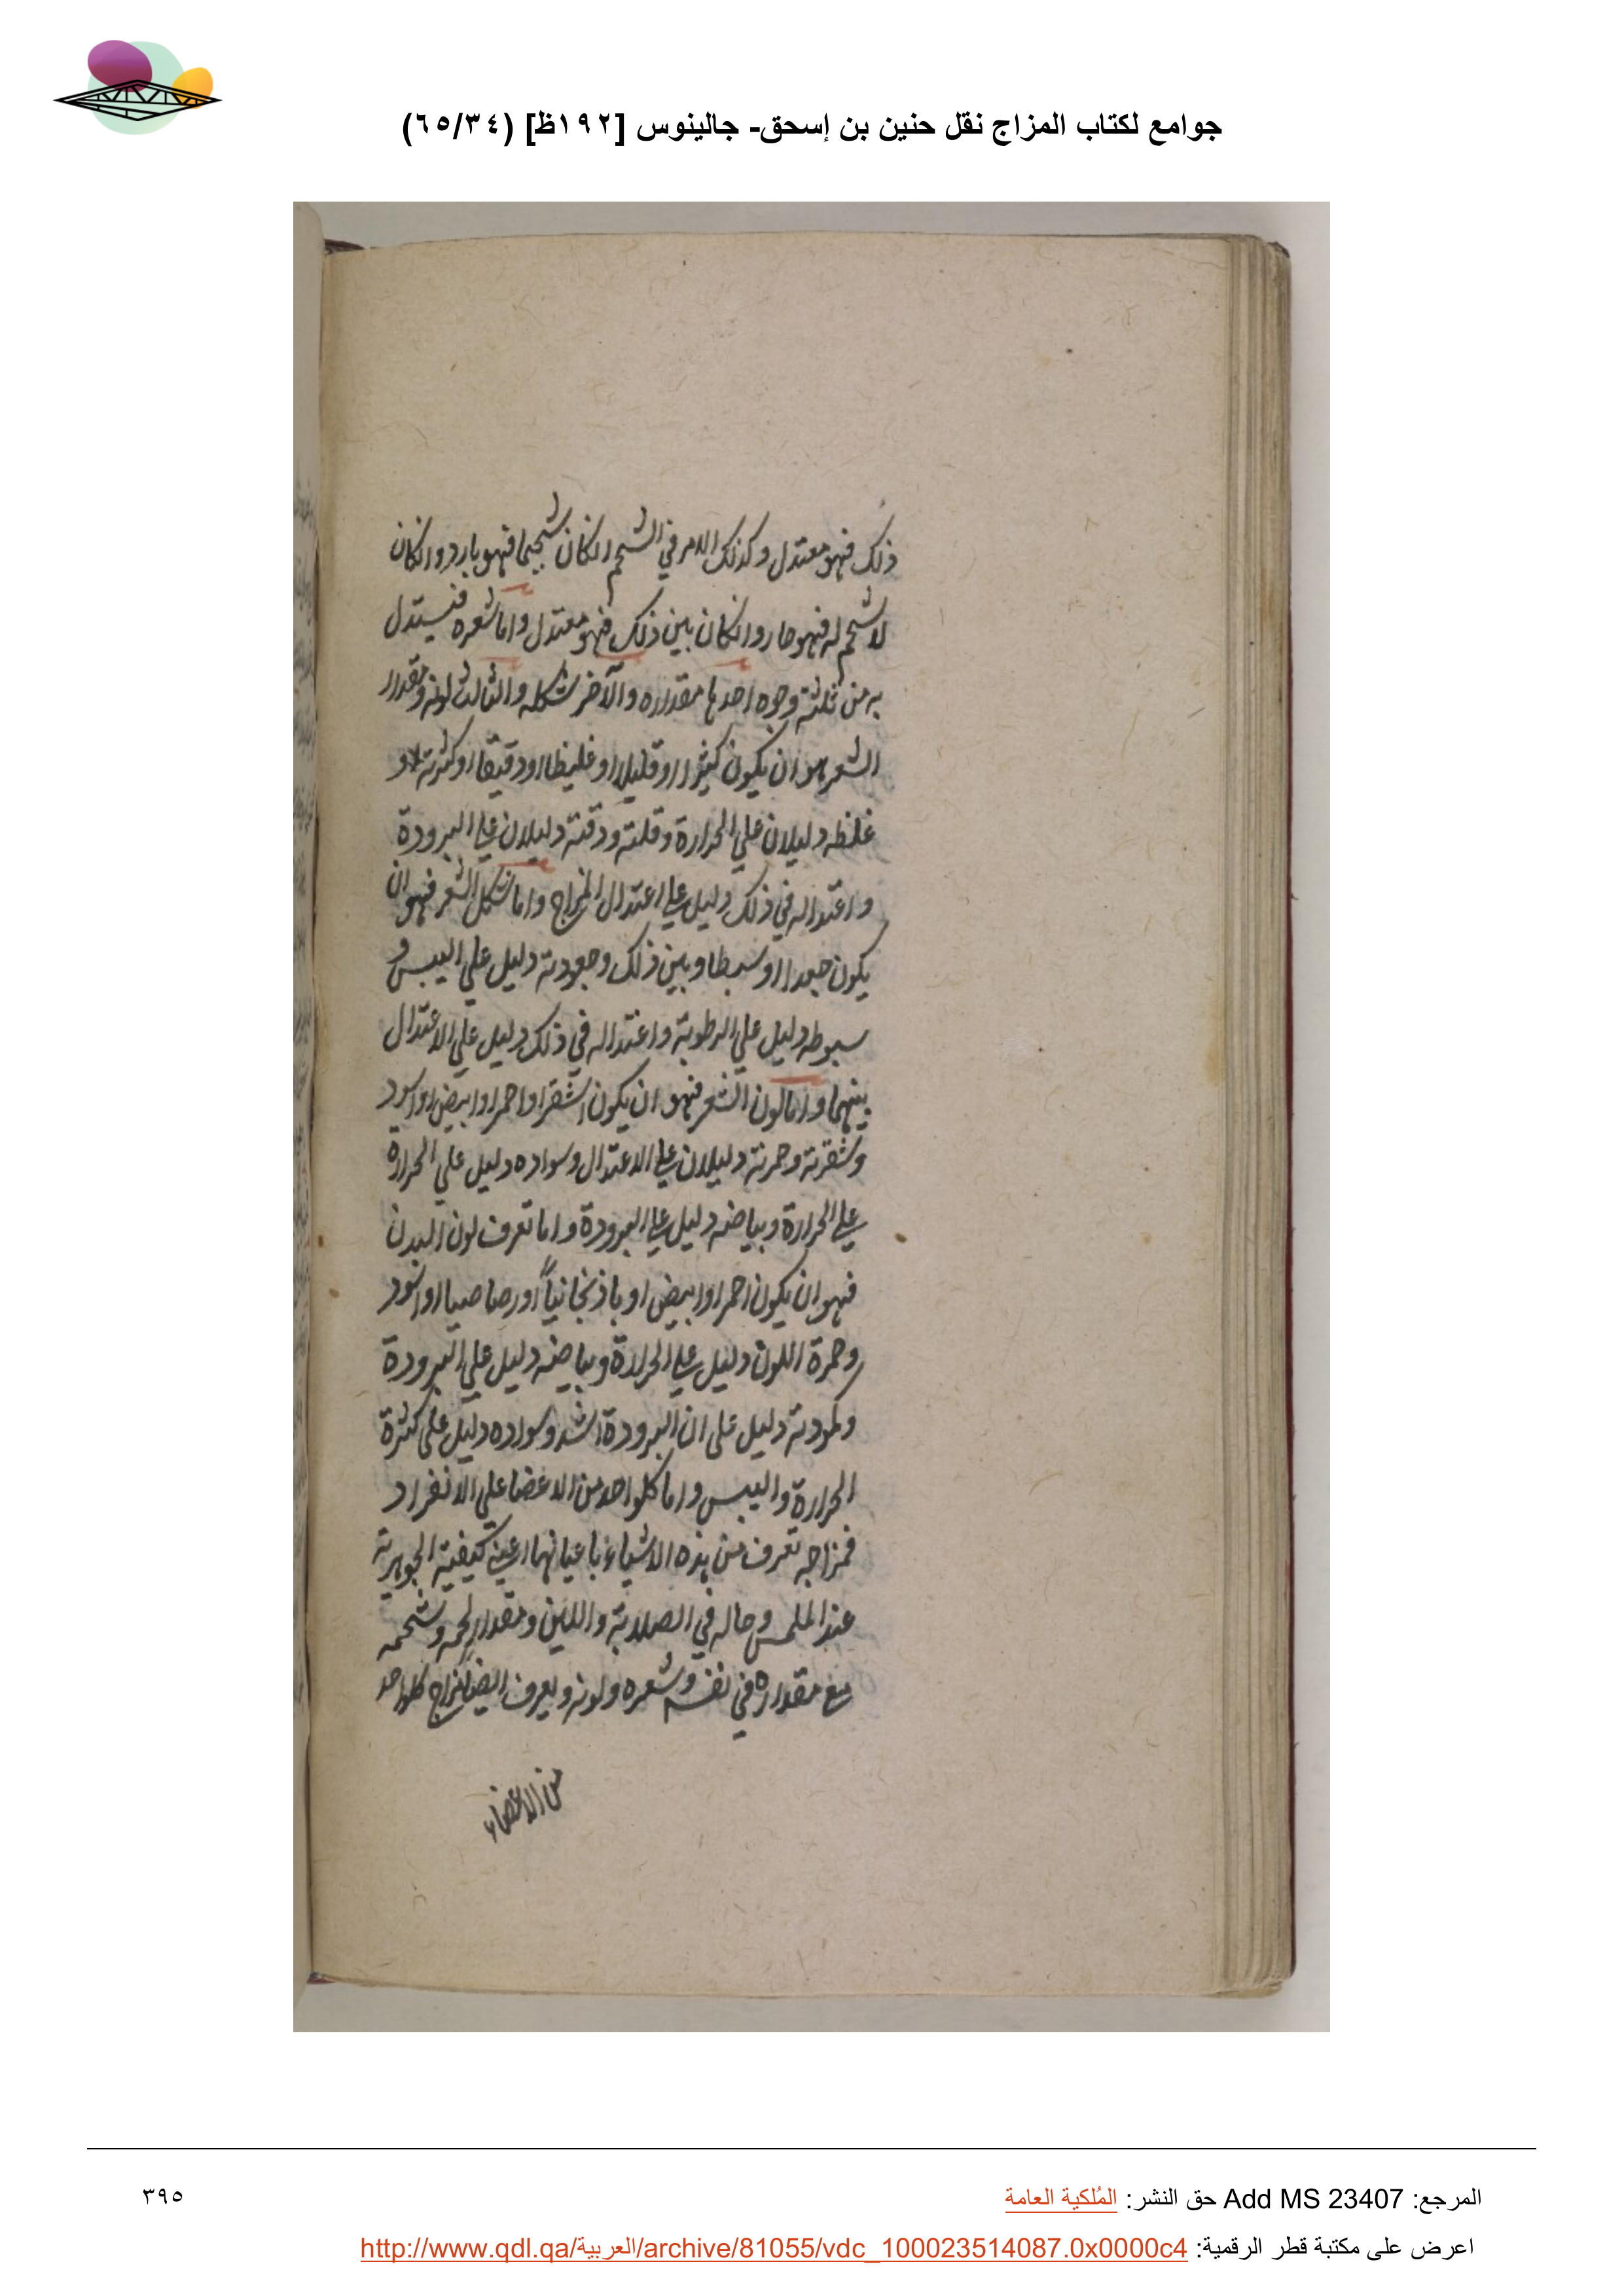 جوامع لكتاب المزاج نقل حنين بن إسحق- جالينوس [١٩٢ظ] (٦٥/٣٤)
ذلك فهو معتدل وكذلك الامر في الشحم انكان شحيما فهو بارد وانكان
لا شحم له فهو حار وانكان بين ذلك فهو معتدل واما شعره فيستدل
به من ثلثة وجوه احدها مقداره والآخر شكله والثالث لونه ومقدار
الشعر هو ان يكون كثيرا او قليلا او غليظا او دقيقا وكثرته و
غلظه دليلان علي الحرارة وقلته ودقته دليلان علي البرودة
واعتداله في ذلك دليل علي اعتدال المزاج واما شكل الشعر فهو ان
يكون جعدا او سبطا وبين ذلك وجعودته دليل علي اليبس و
سبوطه دليل علي الرطوبة واعتداله في ذلك دليل علي الاعتدال
بينهما واما لون الشعر فهو ان يكون اشقر او احمر او ابيض او اسود
وشقرته وحمرته دليلان علي الاعتدال وسواده دليل علي الحرارة
علي الحرارة وبياضه دليل علي البرودة واما تعرف لون البدن
فهو ان يكون احمر او ابيض او باذنجانياً او رصاصيا او اسود
وحمرة اللون دليل علي الحرارة وبياضه دليل علي البرودة
وكمودته دليل علي ان البرودة اشد وسواده دليل علي كثرة
الحرارة واليبس واما كلواحد من الاعضا علي الانفراد
فمزاجه تعرف من هذه الاشياء باعيانها اعني كيفيته الجوهرية
عند الملمس وحاله في الصلابة واللين ومقدار لحمه وشحمه
مع مقداره في نفسه وشعره ولونه ويعرف ايضا مزاج كلواحد
من الاعضاء
المرجع: Add MS 23407 حق النشر: المُلكية العامة
٣٩٥
اعرض على مكتبة قطر الرقمية: http://www.qdl.qa/العربية/archive/81055/vdc_100023514087.0x0000c4